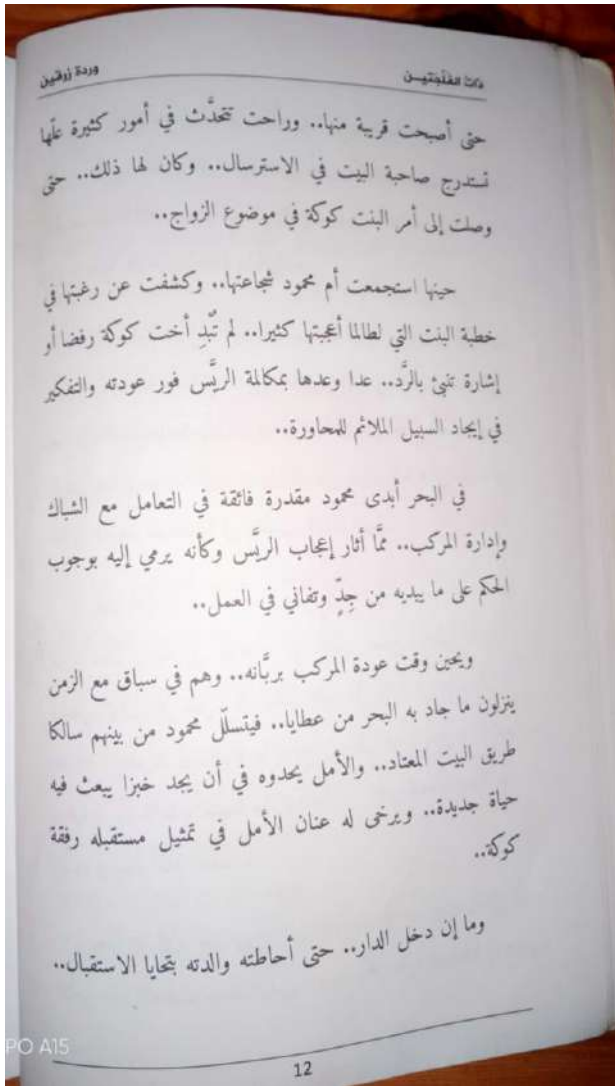 ذات الفلجتيـن
وردة زرقين
حتى أصبحت قريبة منها.. وراحت تتحدَّث في أمور كثيرة علّها
تستدرج صاحبة البيت في الاسترسال.. وكان لها ذلك.. حتى
وصلت إلى أمر البنت كوكة في موضوع الزواج..
حينها استجمعت أم محمود شجاعتها.. وكشفت عن رغبتها في
خطبة البنت التي لطالما أعجبتها كثيرا.. لم تُبدِ أخت كوكة رفضا أو
إشارة تنبئ بالرَّد.. عدا وعدها بمكالمة الريَّس فور عودته والتفكير
في إيجاد السبيل الملائم للمحاورة..
في البحر أبدى محمود مقدرة فائقة في التعامل مع الشباك
وإدارة المركب.. ممَّا أثار إعجاب الريَّس وكأنه يرمي إليه بوجوب
الحكم على ما يبديه من جِدٍّ وتفاني في العمل..
ويحين وقت عودة المركب بربَّانه.. وهم في سباق مع الزمن
ينزلون ما جاد به البحر من عطايا.. فيتسلّل محمود من بينهم سالكا
طريق البيت المعتاد.. والأمل يحدوه في أن يجد خبزا يبعث فيه
حياة جديدة.. ويرخى له عنان الأمل في تمثيل مستقبله رفقة
كوكة..
وما إن دخل الدار.. حتى أحاطته والدته بتحايا الاستقبال..
PO A15
12